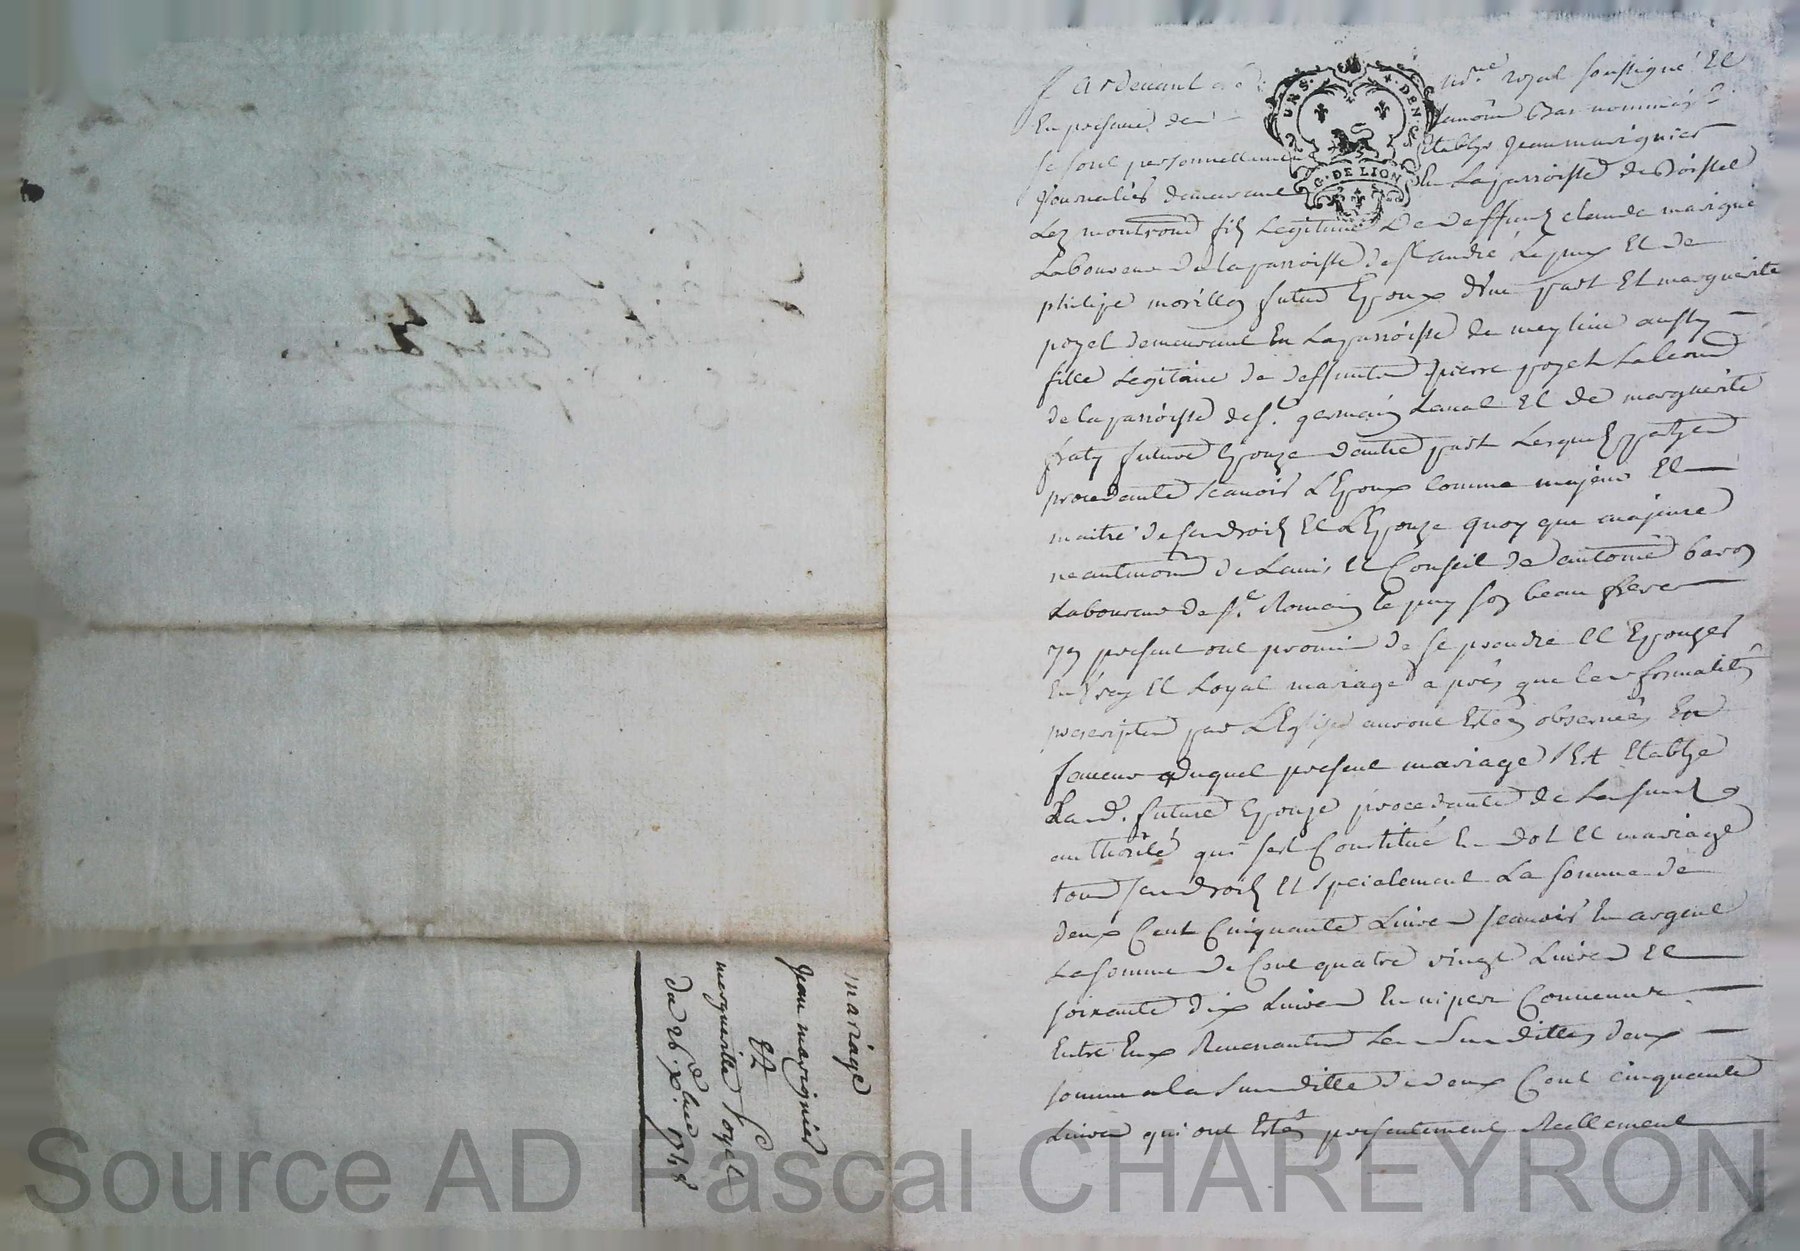 mariage
jean marignier
Et
margueritte Poyet
du 26e. xbre 1748
G. DE LION
DEN.
Pardevant no.re royal soussigné Et
En presence des temoins Bas nommés
se sont personnellement Etablys jean marignier
journalier demeurant En La parroisse de
Lez montrond fils Legitime De deffunt claude marignier
Laboureur de la parroisse de st andré Le puy Et de
philipe morillon futur Epoux d'une part Et marguerite
poyet demeurant En La parroisse de meylieu aussy
fille Legitime de deffunts pierre poyet
de la parroisse de st. germain Laval Et de marguerite
future Epouze d'autre part Lesquels partyes
procedantes scavoir L'Epoux comme majeur Et
maitre de ses droits Et L'Epouze quoy que majeure
neantmoins de L'avis Et Conseil de antoine baron
Laboureur de st. Romain le puy son beau frere
yy present ont promis de se prendre Et Epouzer
En vray Et Loyal mariage après que les formalités
prescriptes par L'Eglise auront Estées observées En
faveur duquel present mariage s'Est Etablye
La d. future Epouze procedante de La susd.
authorité qui s'est Constitué En dot Et mariage
tous ses droits Et specialement La somme de
deux Cent Cinquante Livres scavoir En argent
La somme de Cent quatre vingt Livres Et
soixante dix Livres En nipes Convenues
Entre Eux Revenantes Les susdittes deux
sommes a la susditte de deux Cent cinquante
Livres qui ont Estés presentement Reellement
Source AD Pascal CHAREYRON